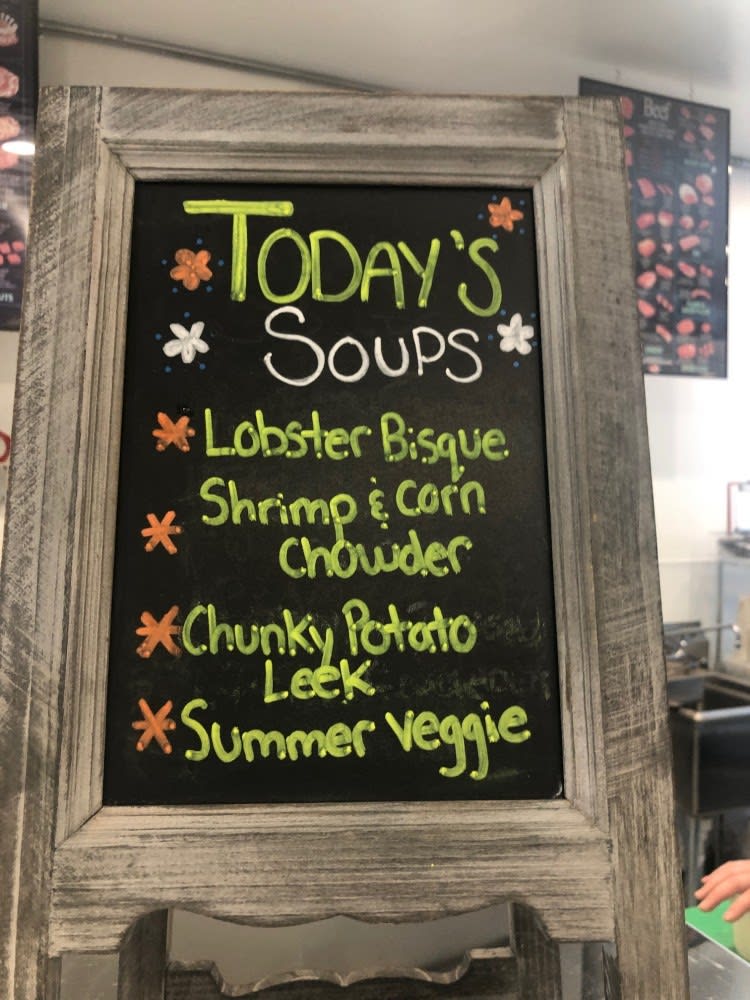 Beef
TODAY'S
SOUPS
Lobster Bisque
Shrimp & Corn
Chowder
Chunky Potato
Leek
Summer Veggie